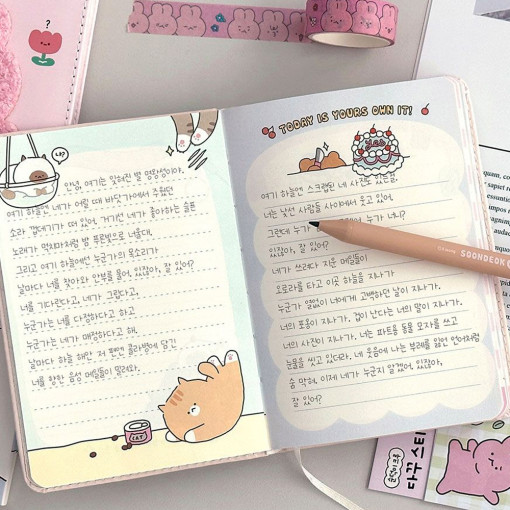 ?
나?
안녕, 여기는 잊혀진 별 명왕성이야.
여기 하늘엔 네가 어릴 때 바닷가에서 주웠던
소라 껍데기가 떠 있어. 거기선 네가 좋아하는 슬픈
노래가 먹치마처럼 밤 푸른빛으로 너울대.
그리고 여기 하늘에선 누군가의 목소리가
날마다 너를 찾아와 안부를 물어. 있잖아, 잘 있어?
너를 기다린다고, 네가 그립다고,
누군가는 너를 다정하다고 하고
누군가는 네가 매정하다고 해.
날마다 하늘 해안 저편엔 콜라병에 담긴
너를 향한 음성 메일들이 밀려와.
CAT
TODAY IS YOURS OWN IT!
yes
여기 하늘엔 스크랩된 네 사진도 있는걸.
너는 낯선 사람들 사이에서 웃고 있어.
그런데 누가 누가 너니?
있잖아, 잘 있어?
네가 쓰려다 지운 메일들이
오로라를 타고 이곳 하늘을 지나가.
누군가 열없이 너에게 고백하던 날이 지나가.
너의 포옹이 지나가, 겁이 난다는 너의 말이 지나가.
너의 사진이 지나가, 너는 파티용 동물 모자를 쓰고
눈물을 씻고 있더라. 네 웃음에 나는 부레를 잃은 인어처럼
숨 막혀. 이제 네가 누군지 알겠어. 있잖아,
잘 있어?
SOONDEOK
다꾸 스티